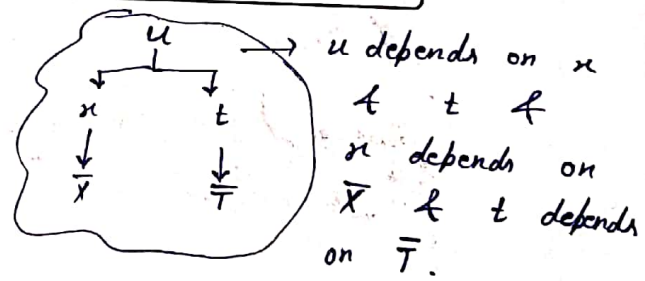 u
x t
X̅ T̿
u depends on x
& t &
x depends on
X̅ & t depends
on T̿.